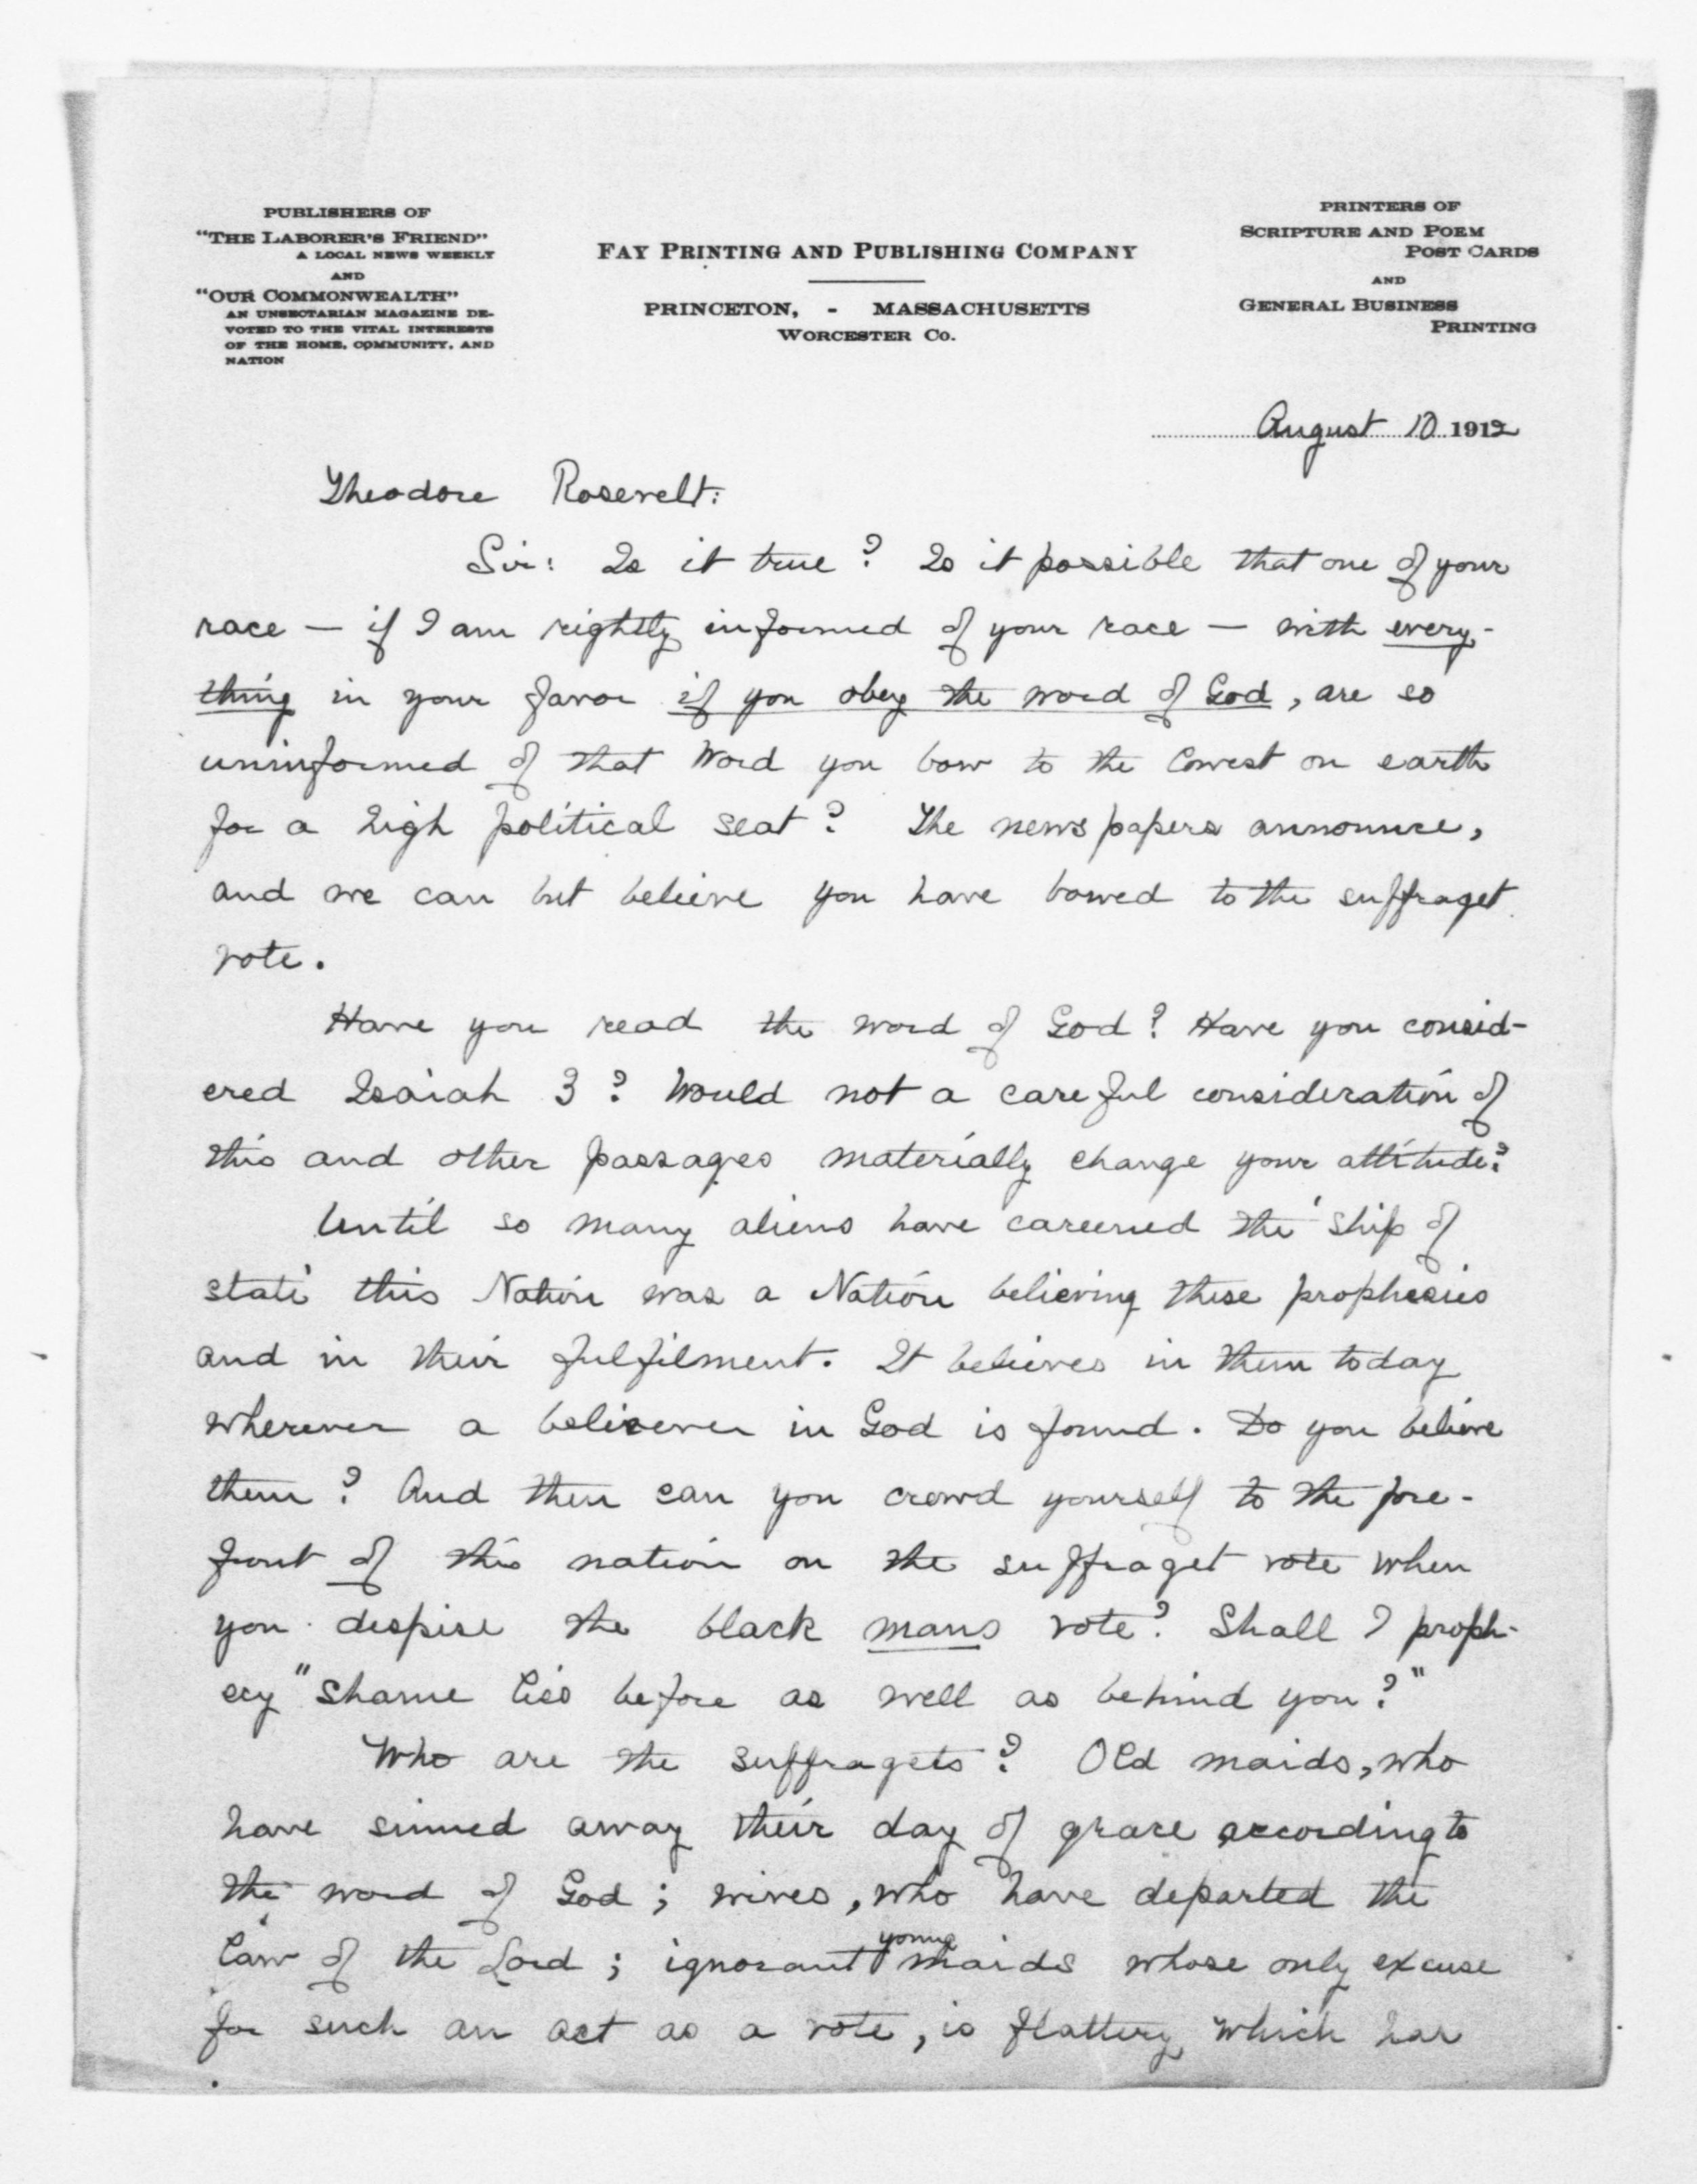 PUBLISHERS OF
"THE LABORER'S FRIEND"
A LOCAL NEWS WEEKLY
AND
"OUR COMMONWEALTH"
AN UNSECTARIAN MAGAZINE DE-
VOTED TO THE VITAL INTERESTS
OF THE HOME, COMMUNITY, AND
NATION
FAY PRINTING AND PUBLISHING COMPANY
PRINCETON, - MASSACHUSETTS
WORCESTER CO.
PRINTERS OF
SCRIPTURE AND POEM
POST CARDS
AND
GENERAL BUSINESS
PRINTING
August 10 1912
Theodore Rosevelt:
Sir: Is it true? Is it possible that one of your
race — if I am rightly informed of your race — with every-
thing in your favor if you obey the word of God, are so
uninformed of that Word you bow to the lowest on earth
for a high political seat? The newspapers announce,
and we can but believe you have bowed to the suffraget
vote.
Have you read the word of God? Have you consid-
ered Isaiah 3? Would not a careful consideration of
this and other passages materially change your attitude?
Until so many aliens have careened the 'ship of
state' this Nation was a Nation believing these prophesies
and in their fulfilment. It believes in them today
wherever a believer in God is found. Do you believe
them? And then can you crowd yourself to the fore-
front of this nation on the suffraget vote when
you despise the black mans vote? Shall I proph-
esy "Shame lies before as well as behind you?"
Who are the suffragets? Old maids, who
have sinned away their day of grace according to
the word of God; wives, who have departed the
law of the Lord; ignorant young maids whose only excuse
for such an act as a vote, is flattery which has